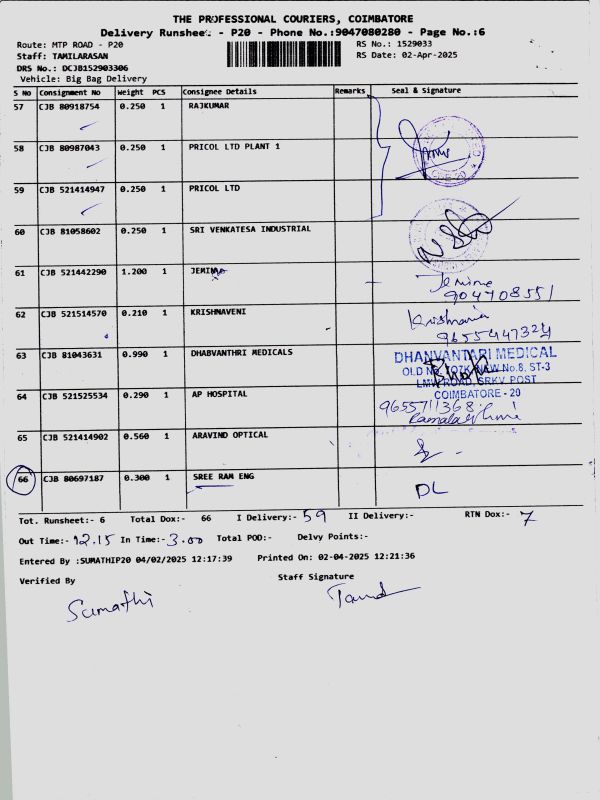 THE PROFESSIONAL COURIERS, COIMBATORE
Delivery Runsheet - P20 - Phone No.:9047080280 - Page No.:6
Route: MTP ROAD - P20
RS No.: 1529033
Staff: TAMILARASAN
RS Date: 02-Apr-2025
DRS No.: DCJB152903306
Vehicle: Big Bag Delivery
S No Consignment No Weight PCS Consignee Details Remarks Seal & Signature
57 CJB 80918754 0.250 1 RAJKUMAR
58 CJB 80987043 0.250 1 PRICOL LTD PLANT 1
59 CJB 521414947 0.250 1 PRICOL LTD
60 CJB 81058602 0.250 1 SRI VENKATESA INDUSTRIAL
61 CJB 521442290 1.200 1 JEMIMA
904708551
62 CJB 521514570 0.210 1 KRISHNAVENI
9655447324
63 CJB 81043631 0.990 1 DHABVANTHRI MEDICALS
DHANVANTARI MEDICAL
No.8, ST-3
ROAD, SRKV POST
COIMBATORE - 20
64 CJB 521525534 0.290 1 AP HOSPITAL
9655711368
65 CJB 521414902 0.560 1 ARAVIND OPTICAL
66 CJB 80697187 0.300 1 SREE RAM ENG
DL
Tot. Runsheet:- 6 Total Dox:- 66 I Delivery:- 59 II Delivery:- RTN Dox:- 7
Out Time:- 12.15 In Time:- 3.00 Total POD:- Delvy Points:-
Entered By :SUMATHIP20 04/02/2025 12:17:39 Printed On: 02-04-2025 12:21:36
Verified By
Staff Signature
Sumathi